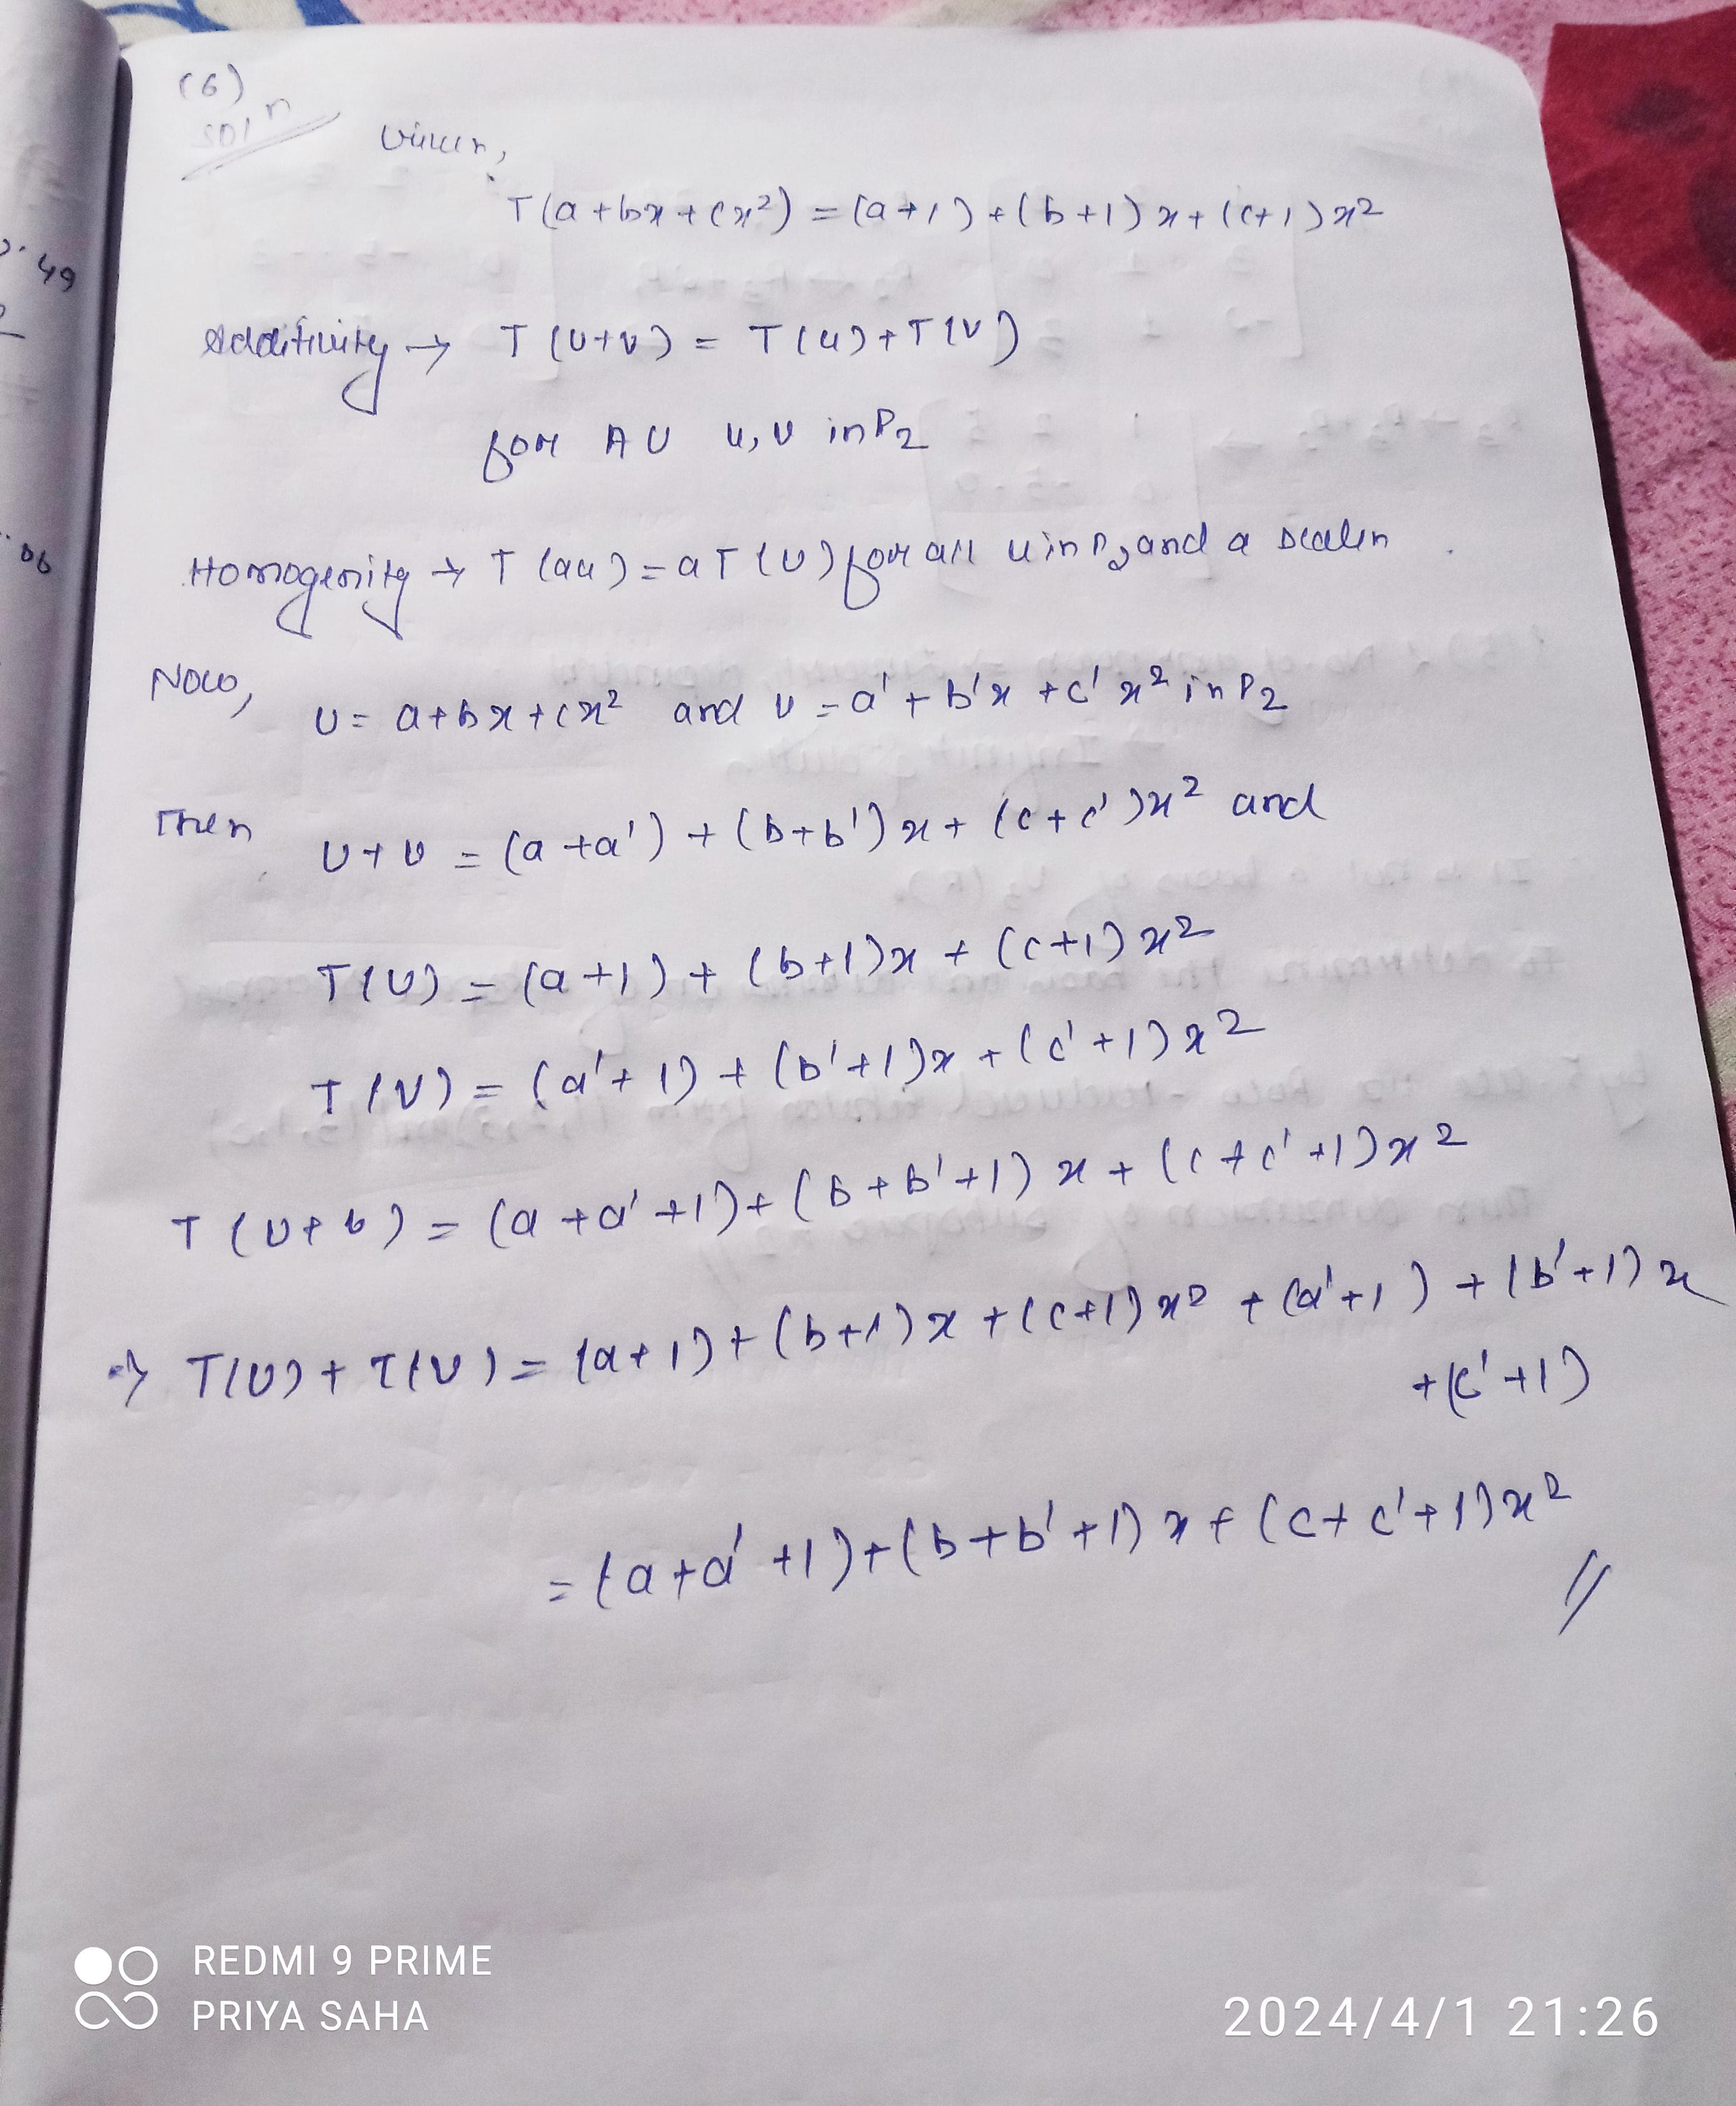 (6)
Solⁿ
Given,
T(a+bx+cx²) = (a+1)+(b+1)x+(c+1)x²
Additivity → T(u+v) = T(u)+T(v)
for All u,v in P₂
Homogenity → T(au) = aT(u) for all u in P₂ and a scaler
Now,
u = a+bx+cx² and v = a'+b'x+c'x² in P₂
Then
u+v = (a+a')+(b+b')x+(c+c')x² and
T(u) = (a+1)+(b+1)x+(c+1)x²
T(v) = (a'+1)+(b'+1)x+(c'+1)x²
T(u+v) = (a+a'+1)+(b+b'+1)x+(c+c'+1)x²
⇒ T(u)+T(v) = (a+1)+(b+1)x+(c+1)x²+(a'+1)+(b'+1)x
+(c'+1)
= (a+a'+1)+(b+b'+1)x+(c+c'+1)x²
49
06
REDMI 9 PRIME
PRIYA SAHA
2024/4/1 21:26